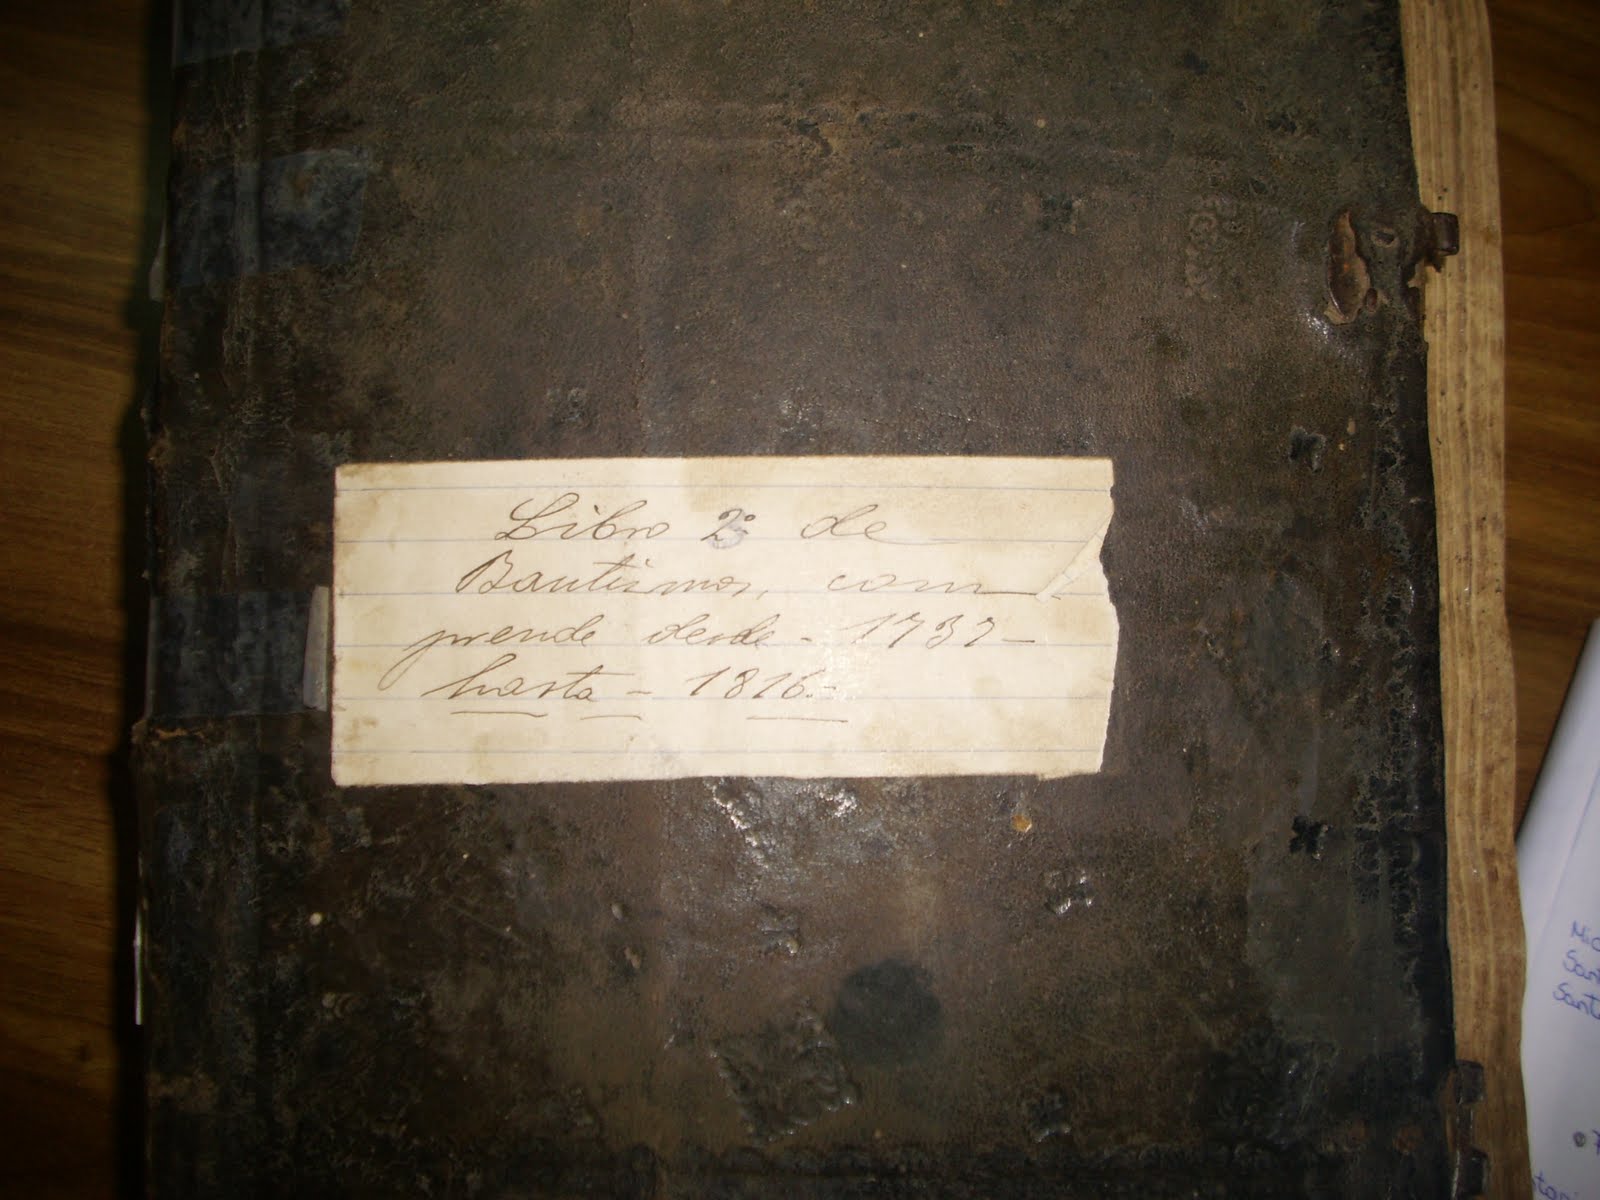 Libro 2º de
Bautismos, com
prende desde - 1737 -
hasta - 1816.-
Mic
San
Sant